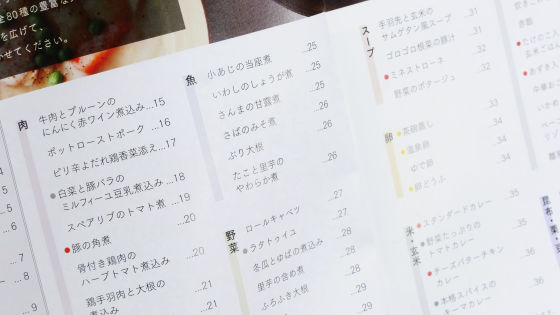 全80種の豊富な
を広げて、
かせてください。
肉
牛肉とプルーンの
にんにく赤ワイン煮込み…15
ポットローストポーク …16
ピリ辛よだれ鶏香菜添え…17
●白菜と豚バラの
ミルフィーユ豆乳煮込み…18
スペアリブのトマト煮 …19
●豚の角煮 …20
骨付き鶏肉の
ハーブトマト煮込み …20
鶏手羽肉と大根の
煮込み …21
…21
…6
…7
…8
…9
魚
小あじの当座煮 …25
いわしのしょうが煮 …25
さんまの甘露煮 …25
さばのみそ煮 …26
ぶり大根 …26
たこと里芋の
やわらか煮 …26
野菜
ロールキャベツ …27
●ラタトゥイユ …27
冬瓜とゆばの煮込み …28
里芋の含め煮 …28
ふろふき大根 …28
…29
…29
スープ
手羽先と玄米の
サムゲタン風スープ …31
ゴロゴロ根菜の豚汁 …31
●ミネストローネ …32
野菜のポタージュ …32
卵
●茶碗蒸し …33
●温泉卵 …34
ゆで卵 …34
●卵どうふ …34
米・玄米
●スタンダードカレー …35
●野菜たっぷりの
トマトカレー …35
●チーズバターチキン
カレー …36
●本格スパイスの
キーマカレー …36
●たけのこ
玄米ご
●あずき